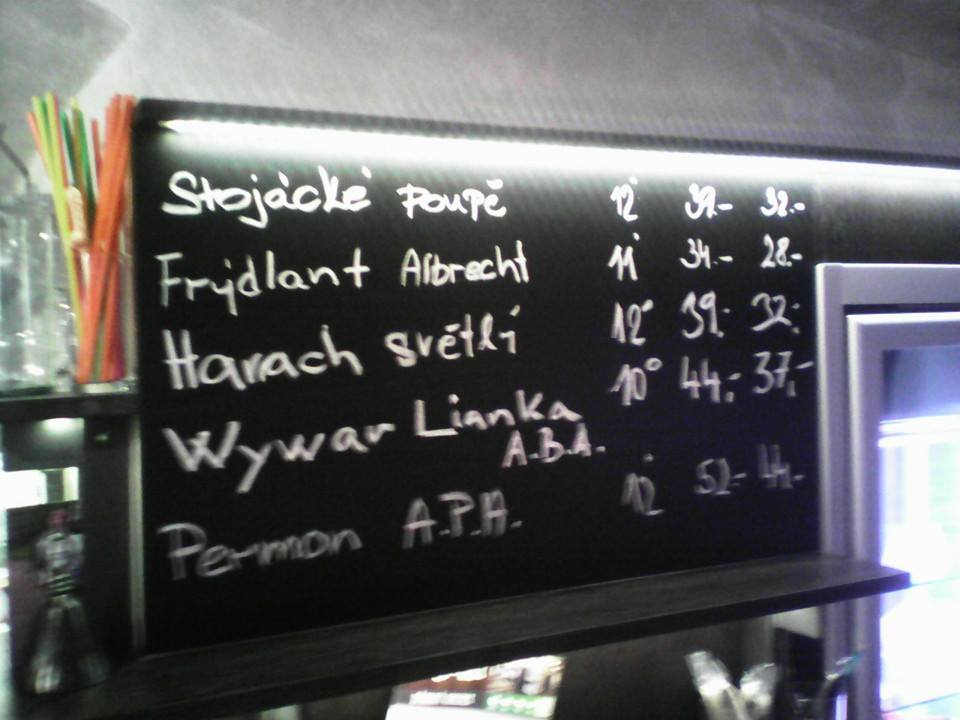 Stojácké Poupě 12° 39.- 32.-
Frýdlant Albrecht 11° 34.- 28.-
Harach světlí 12° 39.- 32.-
Wywar Lianka 10° 44.- 37.-
A.B.A.
Permon A.P.A. 12° 52.- 44.-